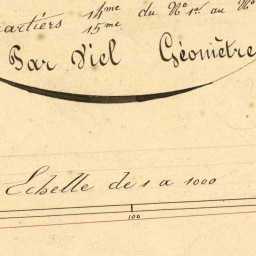 uartiers 14me du No 1er au No
15me
Par Viel Géomètre
Echelle de 1 a 1000
100